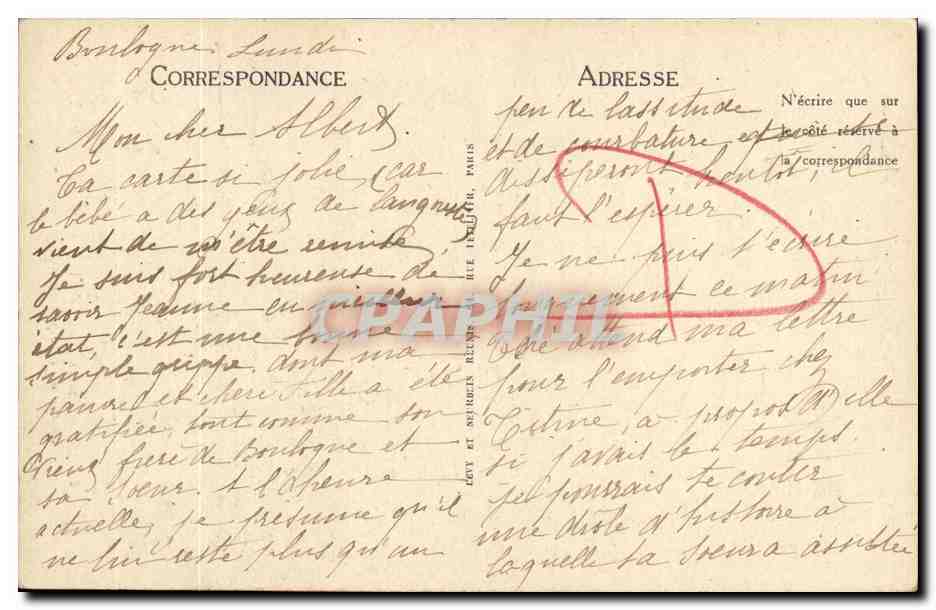 Boulogne Lundi
CORRESPONDANCE
Mon cher Albert,
Ta carte si jolie (car
le bébé a des yeux de langouste)
vient de m'être remise,
Je suis fort heureuse de
savoir Jeanne en meilleur
état, c'est une bonne
simple grippe dont ma
pauvre et chère Fille a été
gratifiée, tout comme son
vieux frère de Boulogne et
sa Soeur. A l'heure
actuelle, je présume qu'il
ne lui reste plus qu'un
LÉVY ET NEURDEIN RÉUNIS RUE LETELLIER, PARIS
ADRESSE
N'écrire que sur
le côté réservé à
la correspondance
peu de lassitude
et de courbature qui se
dissiperont bientôt, il
faut l'espérer.
Je ne puis t'écrire
longuement ce matin
attend ma lettre
pour l'emporter chez
Titine, à propos d'elle
si j'avais le temps
je pourrais te conter
une drôle d'histoire à
laquelle ta Soeur a assistée
D
CPAPHIL